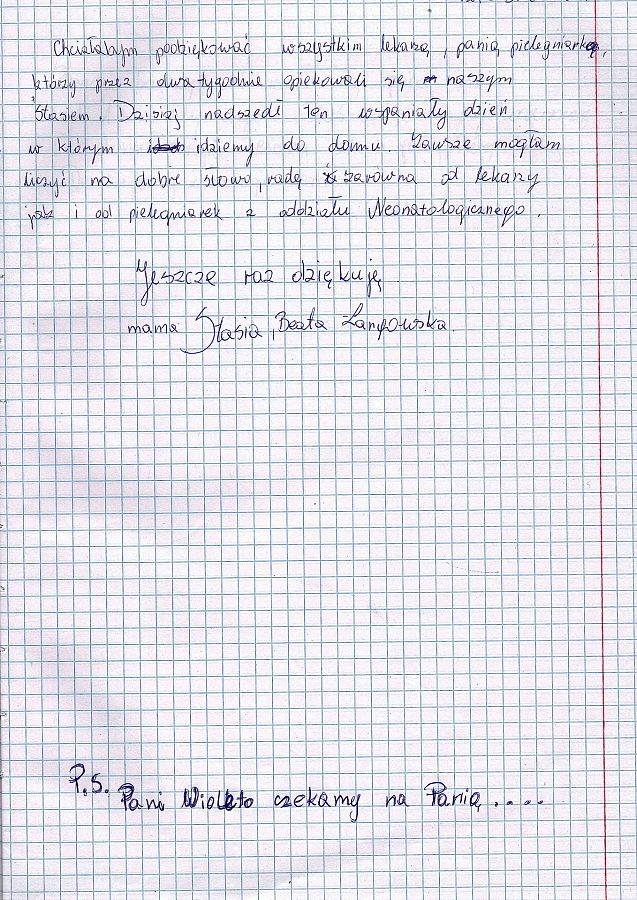 Chciałabym podziękować wszystkim lekarzą, panią pielęgniarką,
którzy przez dwa tygodnie opiekowali się naszym
Stasiem. Dzisiaj nadszedł ten wspaniały dzień
w którym idziemy do domu. Zawsze mogłam
liczyć na dobre słowo, radę zarówna od lekarzy
jak i od pielęgniarek z oddziału Neonatologicznego.
Jeszcze raz dziękuję
mama Stasia, Beata
P.S. Pani Wioletto czekamy na Panią....